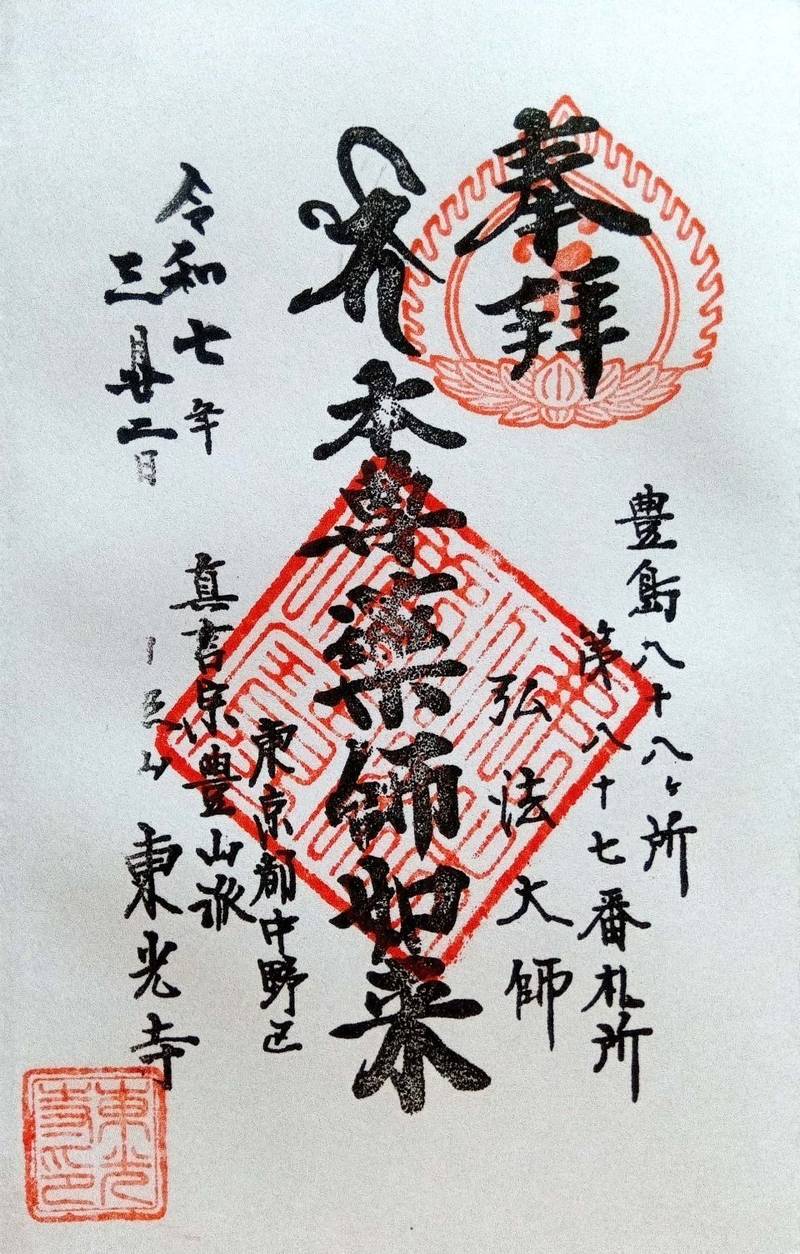 奉拝
豊島八十八ヶ所
第八十七番札所
弘法大師
本尊薬師如来
東京都中野区
真言宗豊山派
東光寺
令和七年
三月廿二日
東光寺印